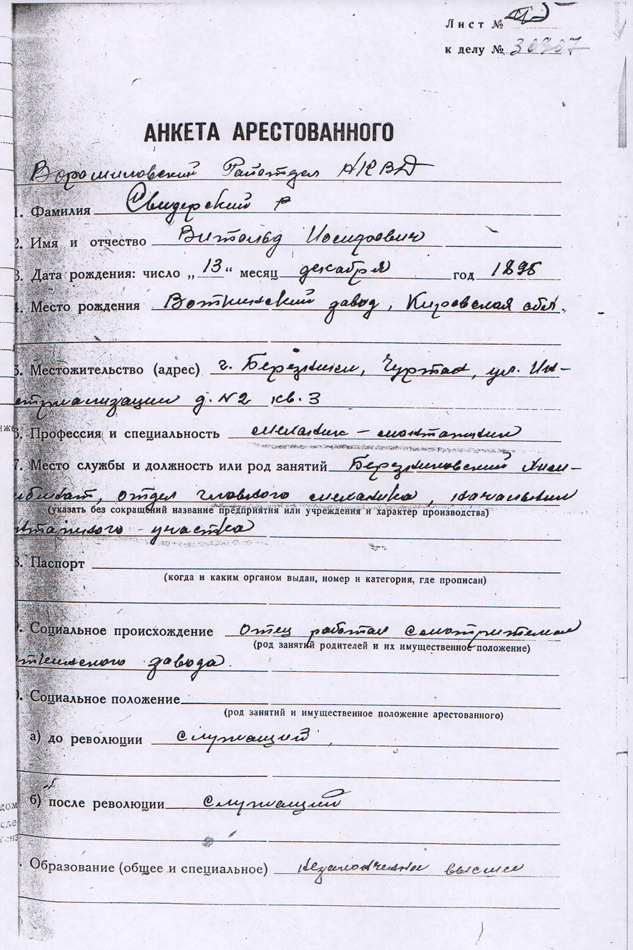 Лист №
к делу № 30907
АНКЕТА АРЕСТОВАННОГО
Ворошиловский Райотдел НКВД
1. Фамилия Свидерский
2. Имя и отчество Витольд Иосифович
3. Дата рождения: число „13“ месяц декабря год 1896
4. Место рождения Воткинский завод, Кировская обл.
5. Местожительство (адрес) г. Березники, Чуртан, ул. Ин-
стриализации д. №2 кв. 3
6. Профессия и специальность механик - монтажник
7. Место службы и должность или род занятий Березниковский Хим-
бинат, отдел главного механика, начальник
(указать без сокращений название предприятия или учреждения и характер производства)
нтажного участка
8. Паспорт
(когда и каким органом выдан, номер и категория, где прописан)
9. Социальное происхождение отец работал смотрителем
(род занятий родителей и их имущественное положение)
ткинского завода.
0. Социальное положение
(род занятий и имущественное положение арестованного)
а) до революции служащий,
б) после революции служащий
. Образование (общее и специальное) незаконченное высшее